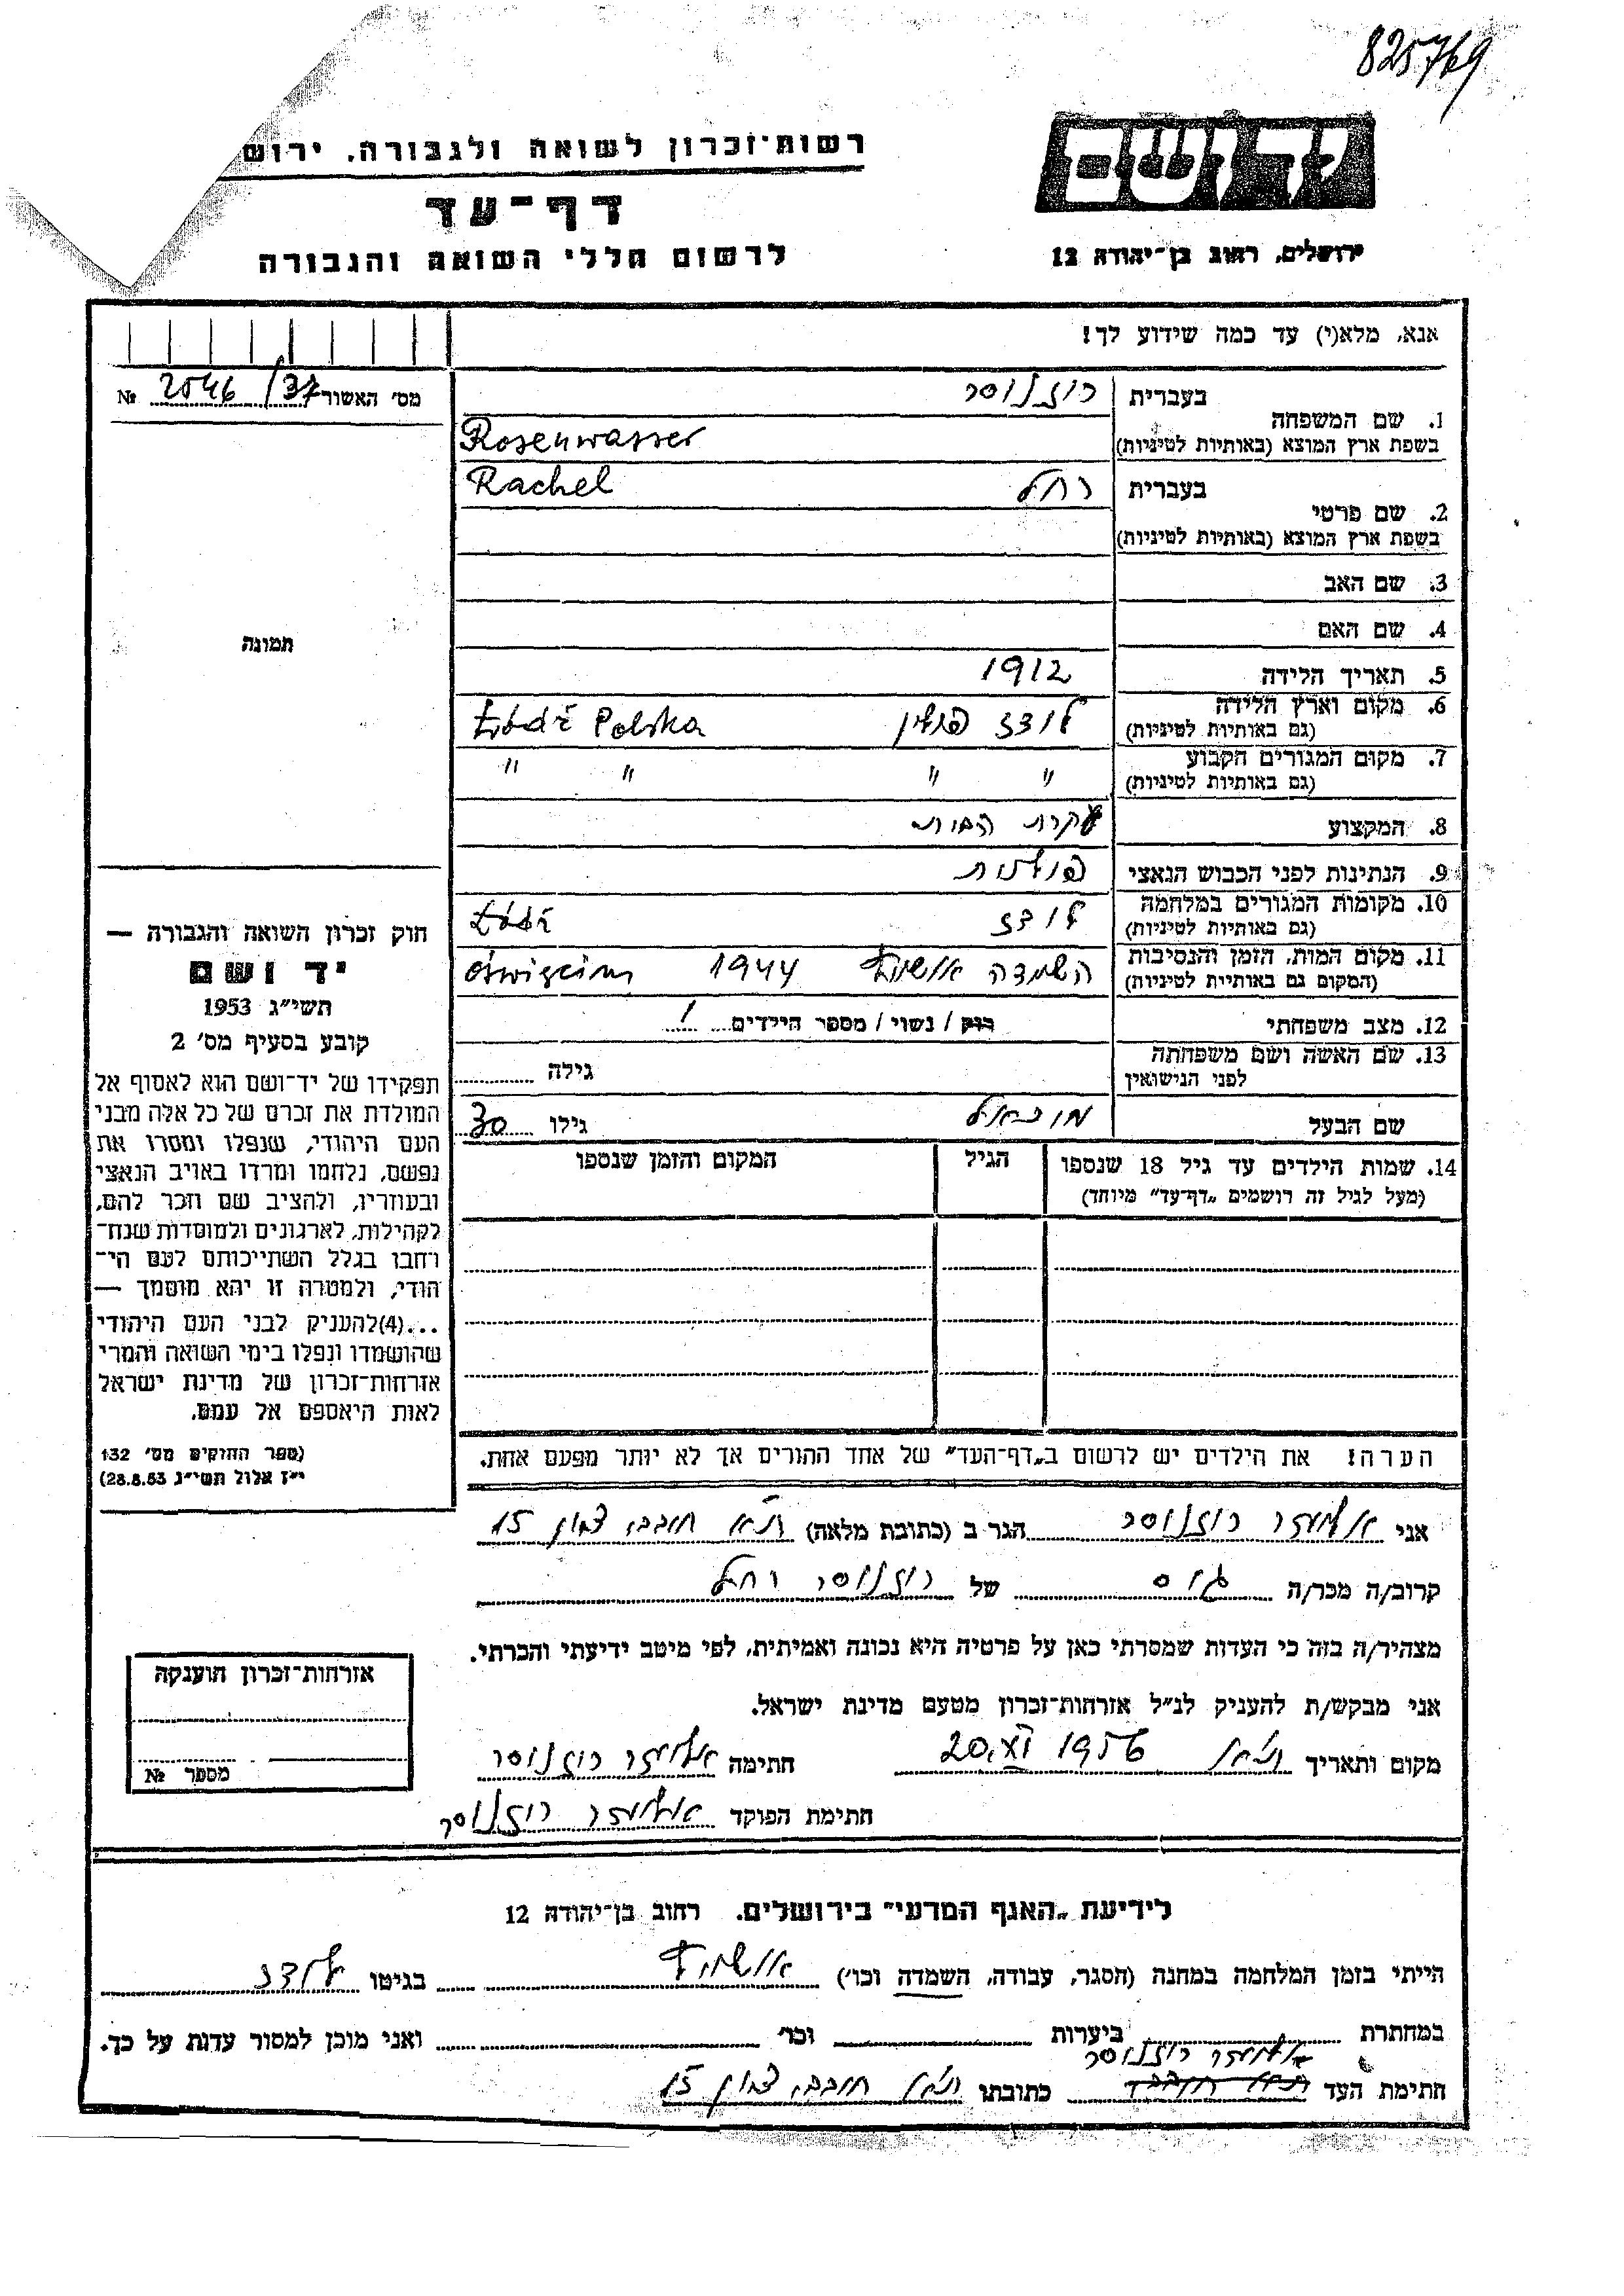 825769
רשות־זכרון לשואה ולגבורה, ירוש
יד ושם
דף־עד
לרשום חללי השואה והגבורה
ירושלים, רחוב בן־יהודה 12
אנא, מלא(י) עד כמה שידוע לך!
מס׳ האשור 2546/37 №
1. שם המשפחה בעברית רוזנוסר
בשפת ארץ המוצא (באותיות לטיניות) Rosenwasser
2. שם פרטי בעברית רחל Rachel
בשפת ארץ המוצא (באותיות לטיניות)
3. שם האב
4. שם האם
תמונה
5. תאריך הלידה 1912
6. מקום וארץ הלידה לודז פולין Łódź Polska
(גם באותיות לטיניות)
7. מקום המגורים הקבוע " " " "
(גם באותיות לטיניות)
8. המקצוע עקרת הבית
9. הנתינות לפני הכבוש הנאצי פולנית
10. מקומות המגורים במלחמה לודז Łódź
(גם באותיות לטיניות)
11. מקום המות, הזמן והנסיבות השמדה 1944 Oświęcim
(המקום גם באותיית לטיניות)
12. מצב משפחתי רוק / נשוי / מספר הילדים 1
13. שם האשה ושם משפחתה גילה
לפני הנישואין
שם הבעל גילו 30
14. שמות הילדים עד גיל 18 שנספו הגיל המקום והזמן שנספו
(מעל לגיל זה רושמים „דף־עד״ מיוחד)
הערה! את הילדים יש לרשום ב„דף־העד״ של אחד ההורים אך לא יותר מפעם אחת.
חוק זכרון השואה והגבורה —
יד ושם
תשי״ג 1953
קובע בסעיף מס׳ 2
תפקידו של יד־ושם הוא לאסוף אל
המולדת את זכרם של כל אלה מבני
העם היהודי, שנפלו ומסרו את
נפשם, נלחמו ומרדו באויב הנאצי
ובעוזריו, ולהציב שם וזכר להם,
לקהילות, לארגונים ולמוסדות שנח־
רחבו בגלל השתייכותם לעם הי־
הודי, ולמטרה זו יהא מוסמך —
...(4)להעניק לבני העם היהודי
שהושמדו ונפלו בימי השואה והמרי
אזרחות־זכרון של מדינת ישראל
לאות היאספם אל עמם.
(ספר החוקים מס׳ 132
י״ז אלול תשי״ג 28.8.53)
אני אליעזר רוזנוסר הגר ב (כתובת מלאה) ת״א חובבי ציון 15
קרוב/ה מכר/ה גיס של רוזנוסר רחל
מצהיר/ה בזה כי העדות שמסרתי כאן על פרטיה היא נכונה ואמיתית, לפי מיטב ידיעתי והכרתי.
אני מבקש/ת להעניק לנ״ל אזרחות־זכרון מטעם מדינת ישראל.
מקום ותאריך ת״א 20.XI 1956 חתימה אליעזר רוזנוסר
חתימת הפוקד אליעזר רוזנוסר
אזרחות־זכרון הוענקה
מספר №
לידיעת „האגף המדעי״ בירושלים. רחוב בן־יהודה 12
הייתי בזמן המלחמה במחנה (הסגר, עבודה, השמדה וכו׳) בגיטו לודז
במחתרת ביערות וכו׳ ואני מוכן למסור עדות על כך.
אליעזר רוזנוסר
חתימת העד כתובתו ת״א חובבי ציון 15